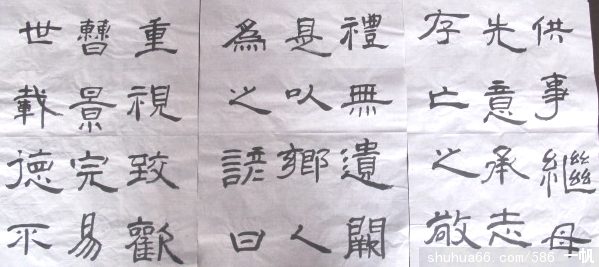 供事繼母
先意承志
存亡之敬
禮無遺闕
是以鄉人
為之諺曰
重視致歡
曹景完易
世載德不
shuhua66.com/586 一帆